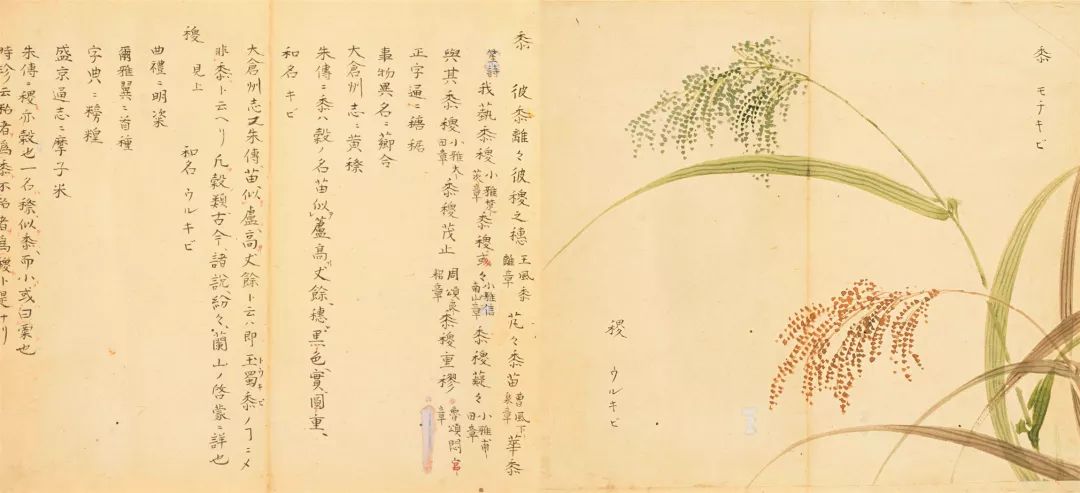 黍 モチキビ
稷 ウルキビ
黍 彼黍離々彼稷之穗 王風黍離章 芃々黍苗 曹風下泉章 華黍
笙詩 我蓺黍稷 小雅楚茨章 黍稷或々 小雅信南山章 黍稷薿々 小雅甫田章
與其黍稷 小雅大田章 黍稷茂止 周頌良耜章 黍稷重穋 魯頌閟宮章
正字通ニ 穡䅕
事物異名ニ 薌合
大倉州志ニ 黄穄
朱傳ニ黍ハ穀ノ名苗似蘆高丈餘、穗黒色實圓重、
和名 キビ
大倉州志又朱傳苗似蘆、高丈餘ト云ハ即玉蜀黍ノヿニメ
トウキビ
非黍ト云ヘリ凢穀類古今ノ諸説紛々蘭山ノ啓蒙ニ詳也
稷 見上 和名 ウルキビ
曲禮ニ明粢
爾雅翼ニ首種
字典ニ 䅣䅣
盛京通志ニ摩子米
朱傳ニ稷亦穀也一名穄似黍而小或曰粟也
時珍云粘者爲黍不粘者爲稷ト是ナリ